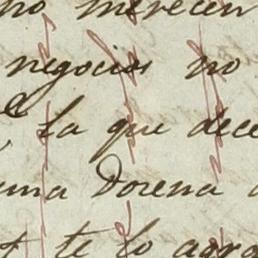 no merecen
negocios no
la que dece
una Dorena
te lo agra